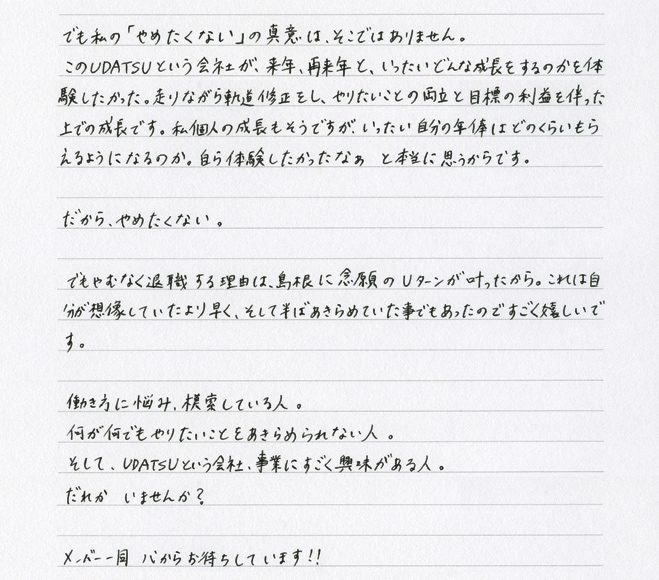 でも私の「やめたくない」の真意は、そこではありません。
このUDATSUという会社が、来年、再来年と、いったいどんな成長をするのかを体
験したかった。走りながら軌道修正をし、やりたいことの両立と目標の利益を伴った
上での成長です。私個人の成長もそうですが、いったい自分の年俸はどのくらいもら
えるようになるのか。自ら体験したかったなぁ と本当に思うからです。
だから、やめたくない。
でもやむなく退職する理由は、島根に念願のUターンが叶ったから。これは自
分が想像していたより早く、そして半ばあきらめていた事でもあったのですごく嬉しいで
す。
働き方に悩み、模索している人。
何が何でもやりたいことをあきらめられない人。
そして、UDATSUという会社、事業にすごく興味がある人。
だれか いませんか?
メンバー一同 心からお待ちしています!!